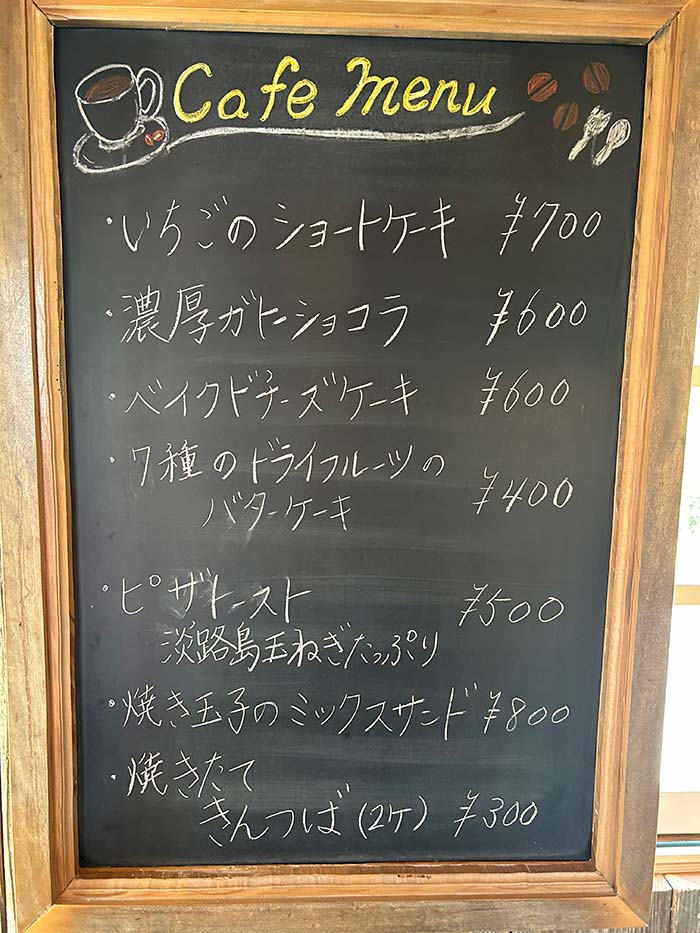 Cafe Menu
・いちごのショートケーキ ¥700
・濃厚ガトーショコラ ¥600
・ベイクドチーズケーキ ¥600
・7種のドライフルーツの
バターケーキ ¥400
・ピザトースト ¥500
淡路島玉ねぎたっぷり
・焼き玉子のミックスサンド ¥800
・焼きたて
きんつば(2ケ) ¥300